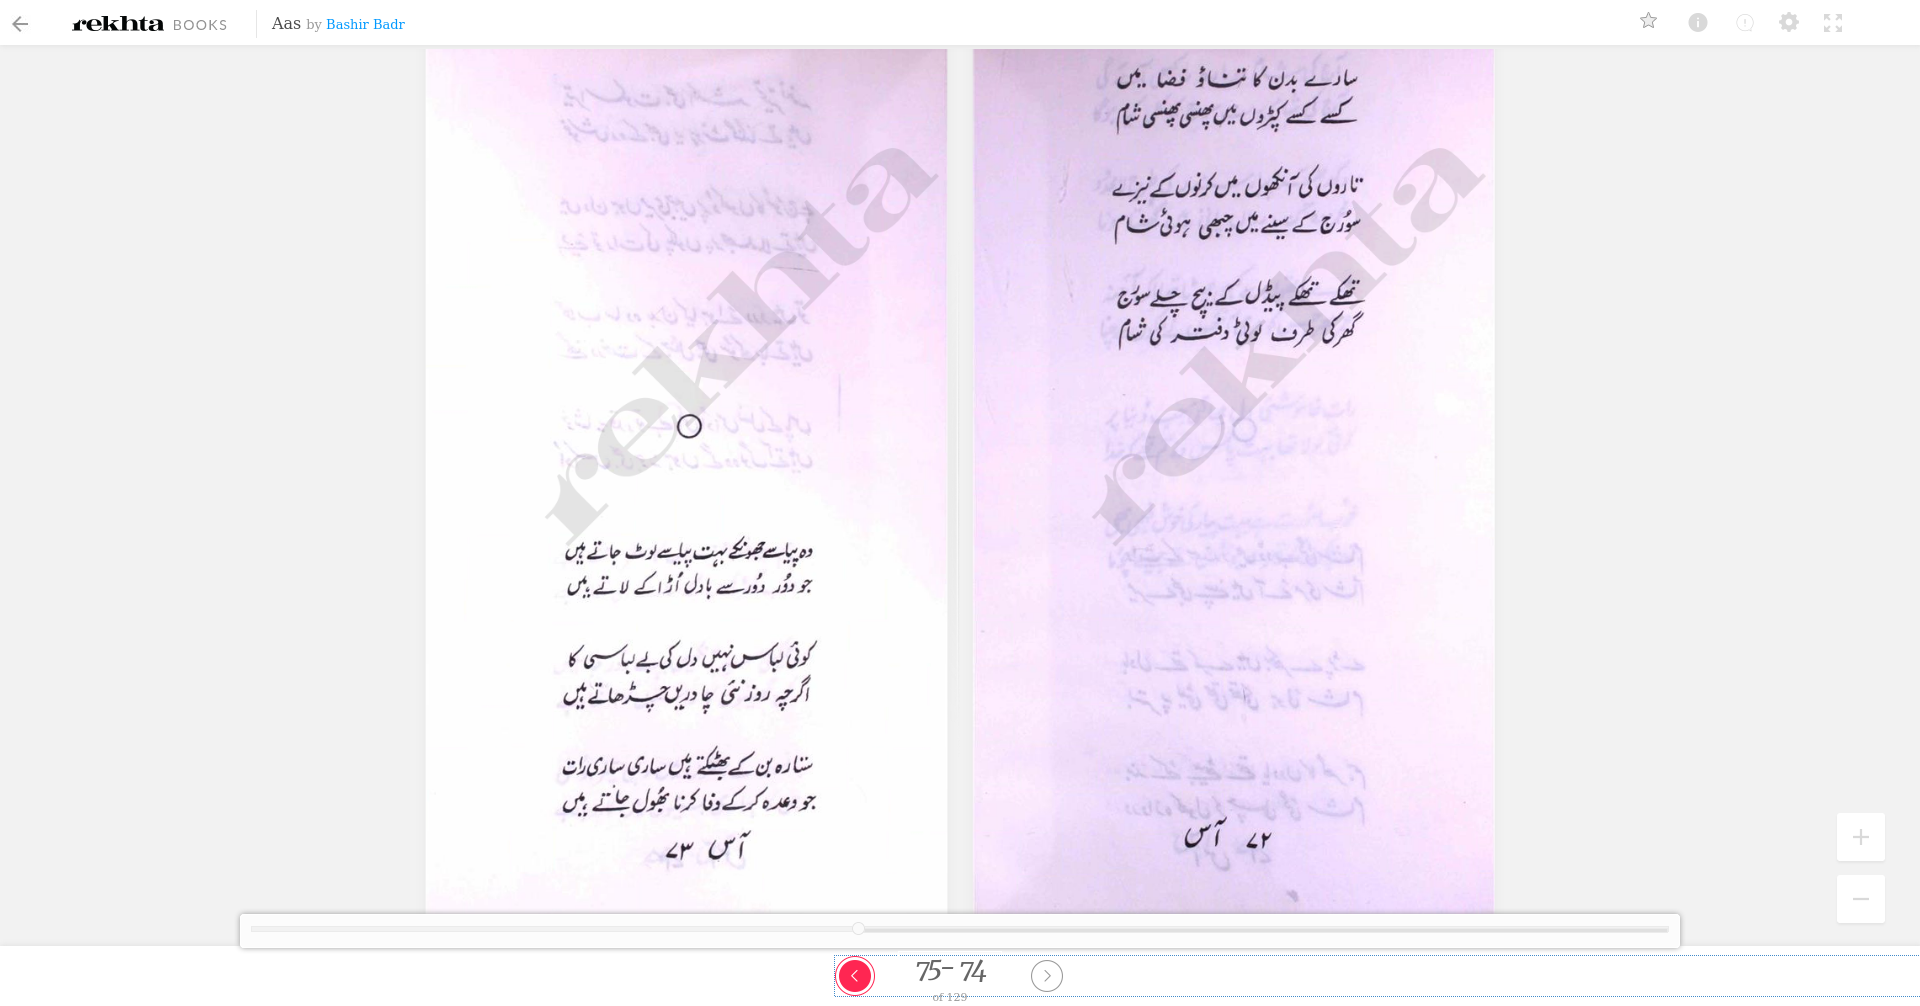 rekhta BOOKS
Aas by Bashir Badr
سارے بدن کا تناؤ فضا میں
کسے کسے کپڑوں میں پھنسی پھنسی شام
تاروں کی آنکھوں میں کرنوں کے نیزے
سُورج کے سینے میں چبھی ہوئی شام
تھکے تھکے پیڈل کے بیچ چلے سورُج
گھر کی طرف لوٹی دفتر کی شام
۷۲ آس
وہ پیاسے جھونکے بہت پیاسے لوٹ جاتے ہیں
جو دُور دُور سے بادل اُڑا کے لاتے ہیں
کوئی لباس نہیں دل کی بے لباسی کا
اگرچہ روز نئی چادریں چڑھاتے ہیں
ستارہ بن کے بھٹکتے ہیں ساری ساری رات
جو وعدہ کر کے وفا کرنا بھُول جاتے ہیں
آس ۷۳
rekhta
rekhta
75- 74
of 129